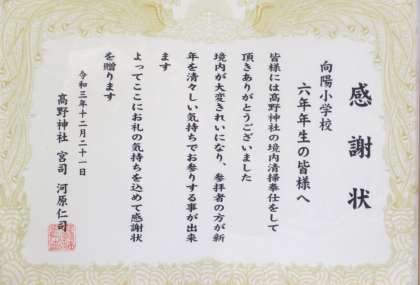 感謝状
向陽小学校
六年年生の皆様へ
皆様には高野神社の境内清掃奉仕をして
頂きありがとうございました
境内が大変きれいになり、参拝者の方が新
年を清々しい気持ちでお参りする事が出来
ます
よってここにお礼の気持ちを込めて感謝状
を贈ります
令和三年十二月二十一日
高野神社 宮司 河原仁司